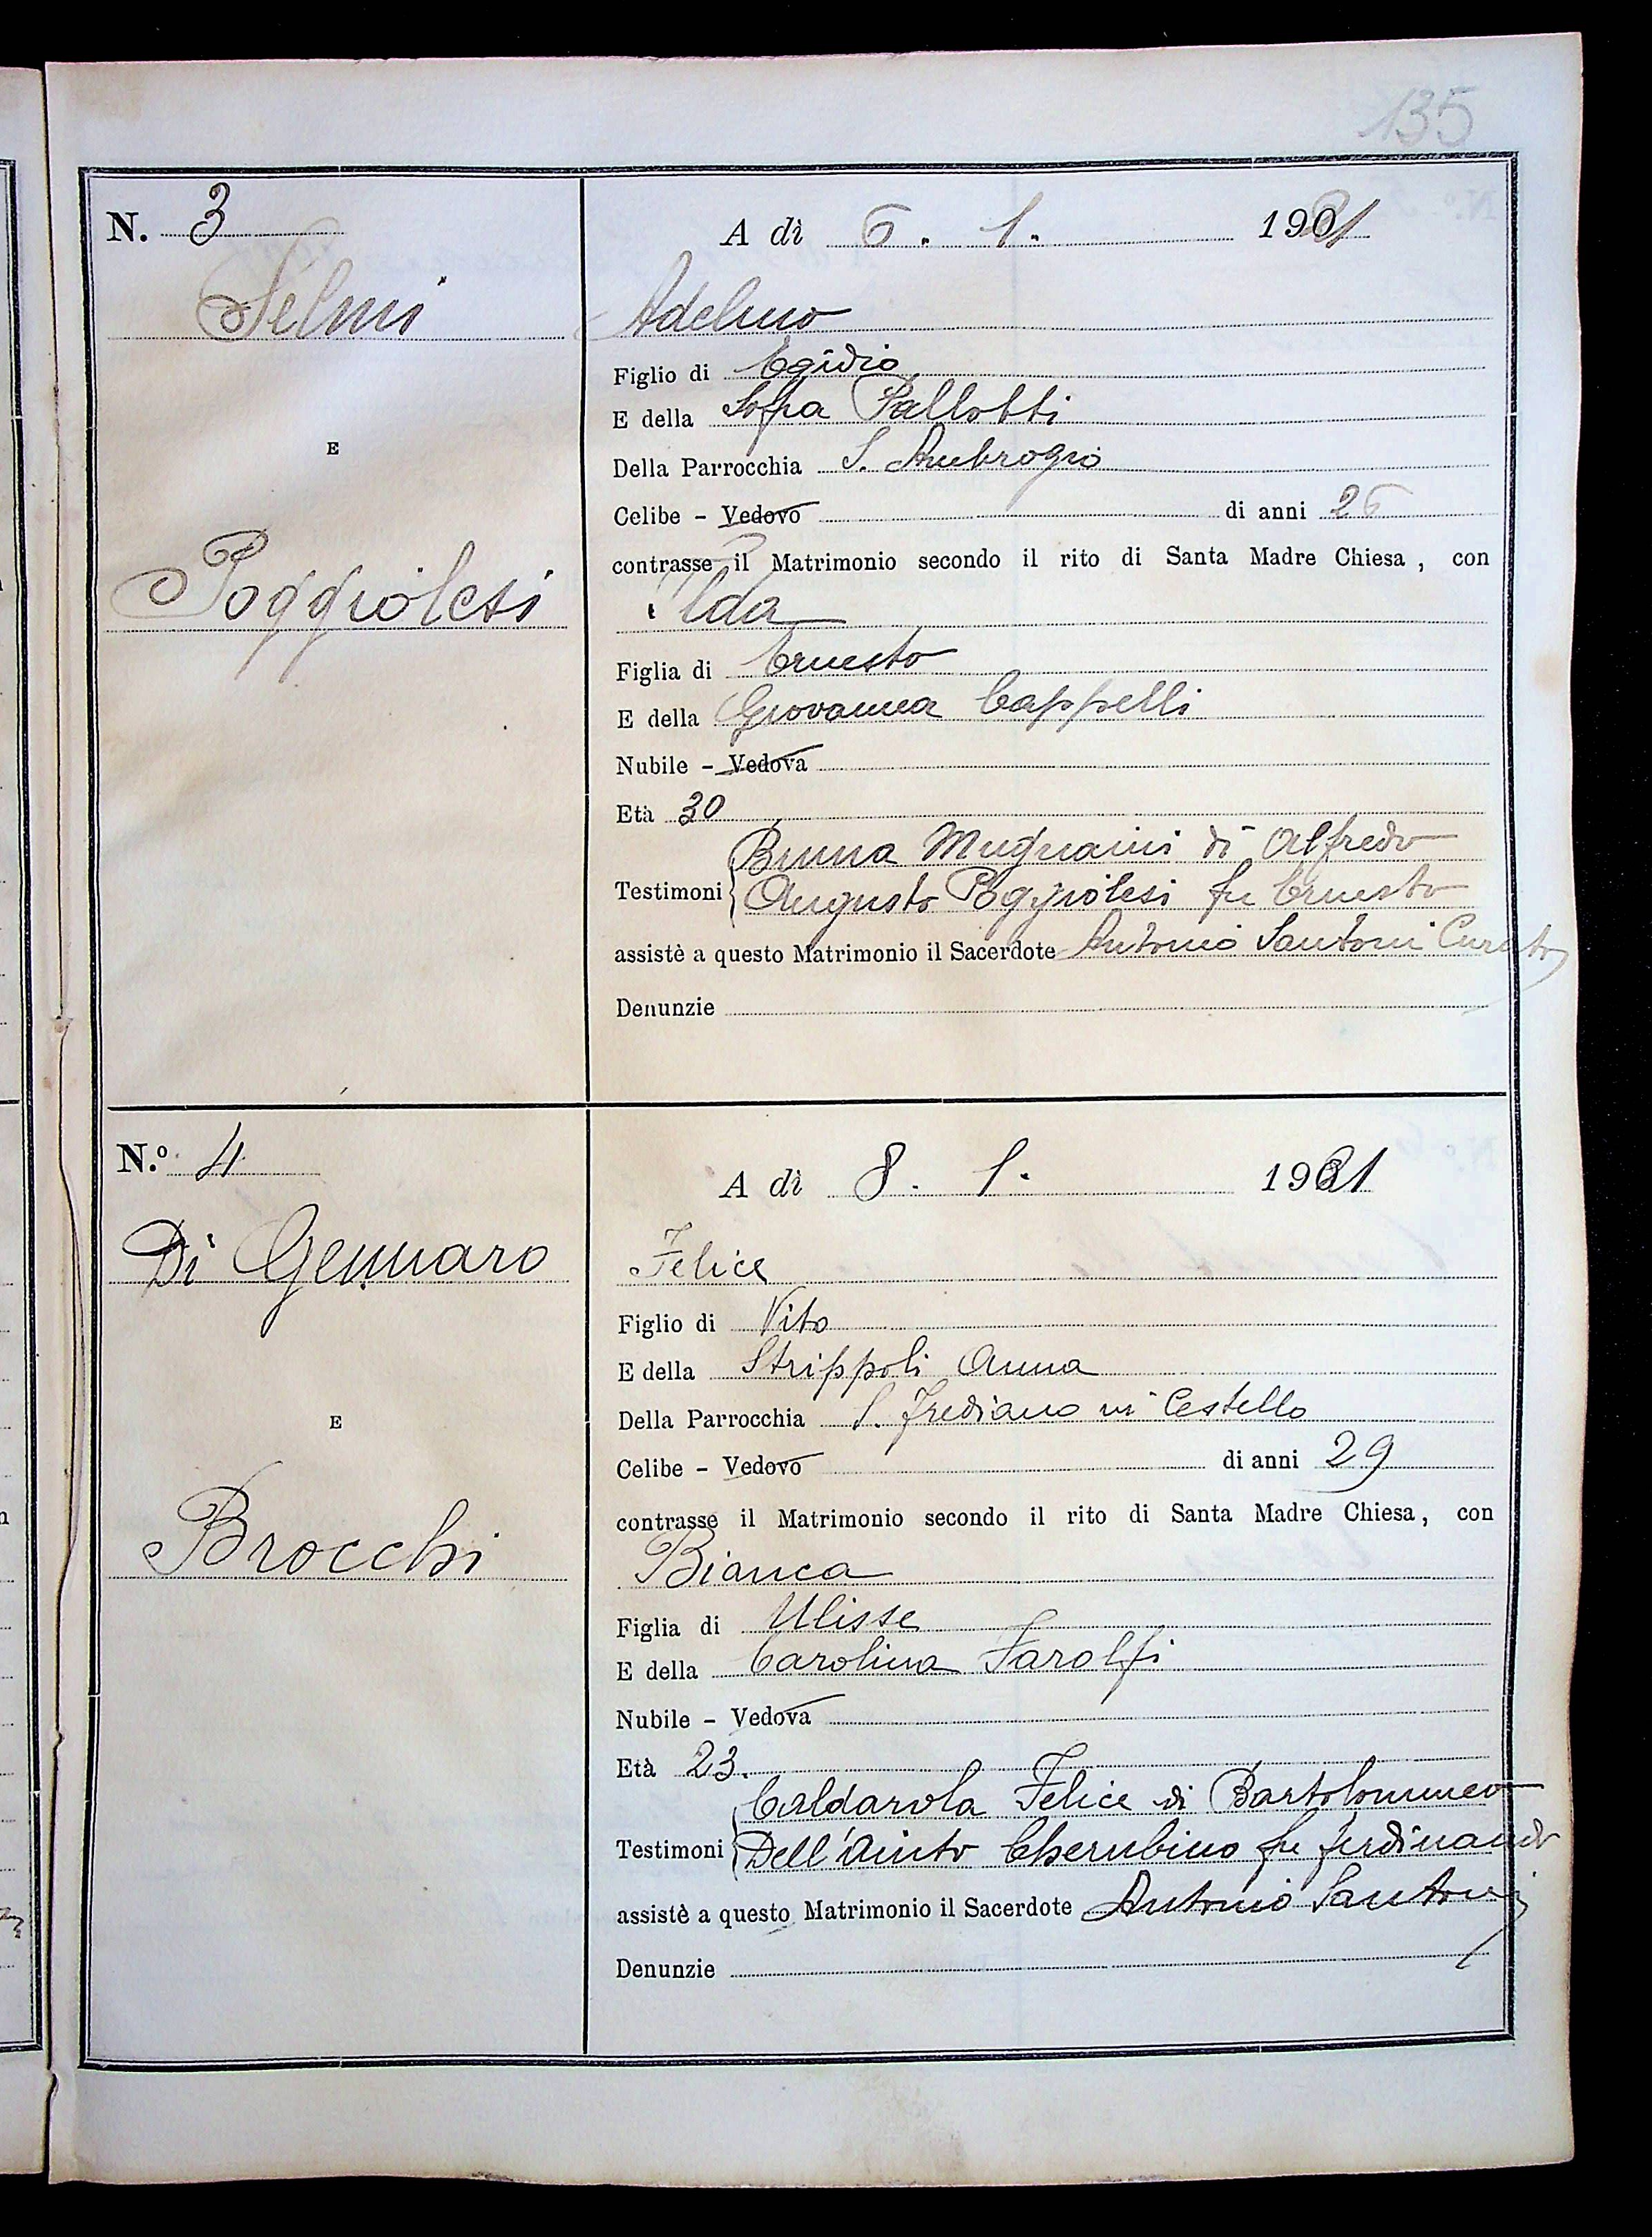 135
N. 3
A dì 6. 1. 1931
Selmi
Adelmo
Figlio di Egidio
E della Sofia Pallotti
E
Della Parrocchia S. Ambrogio
Celibe - Vedovo di anni 26
contrasse il Matrimonio secondo il rito di Santa Madre Chiesa, con
Poggiolesi
Ilda
Figlia di Ernesto
E della Giovanna Cappelli
Nubile - Vedova
Età 30
Bruna Mugnaini di Alfredo
Testimoni Augusto Poggiolesi fu Ernesto
assistè a questo Matrimonio il Sacerdote Antonio Santoni Curato
Denunzie
N.º 4
A dì 8. 1. 1931
Di Gennaro
Felice
Figlio di Vito
E della Strippoli Anna
E
Della Parrocchia S. Frediano in Cestello
Celibe - Vedovo di anni 29
contrasse il Matrimonio secondo il rito di Santa Madre Chiesa, con
Brocchi
Bianca
Figlia di Ulisse
E della Carolina Farolfi
Nubile - Vedova
Età 23.
Caldarola Felice di Bartolommeo
Testimoni Dell'Aiuto Cherubino fu Ferdinando
assistè a questo Matrimonio il Sacerdote Antonio Santoni
Denunzie